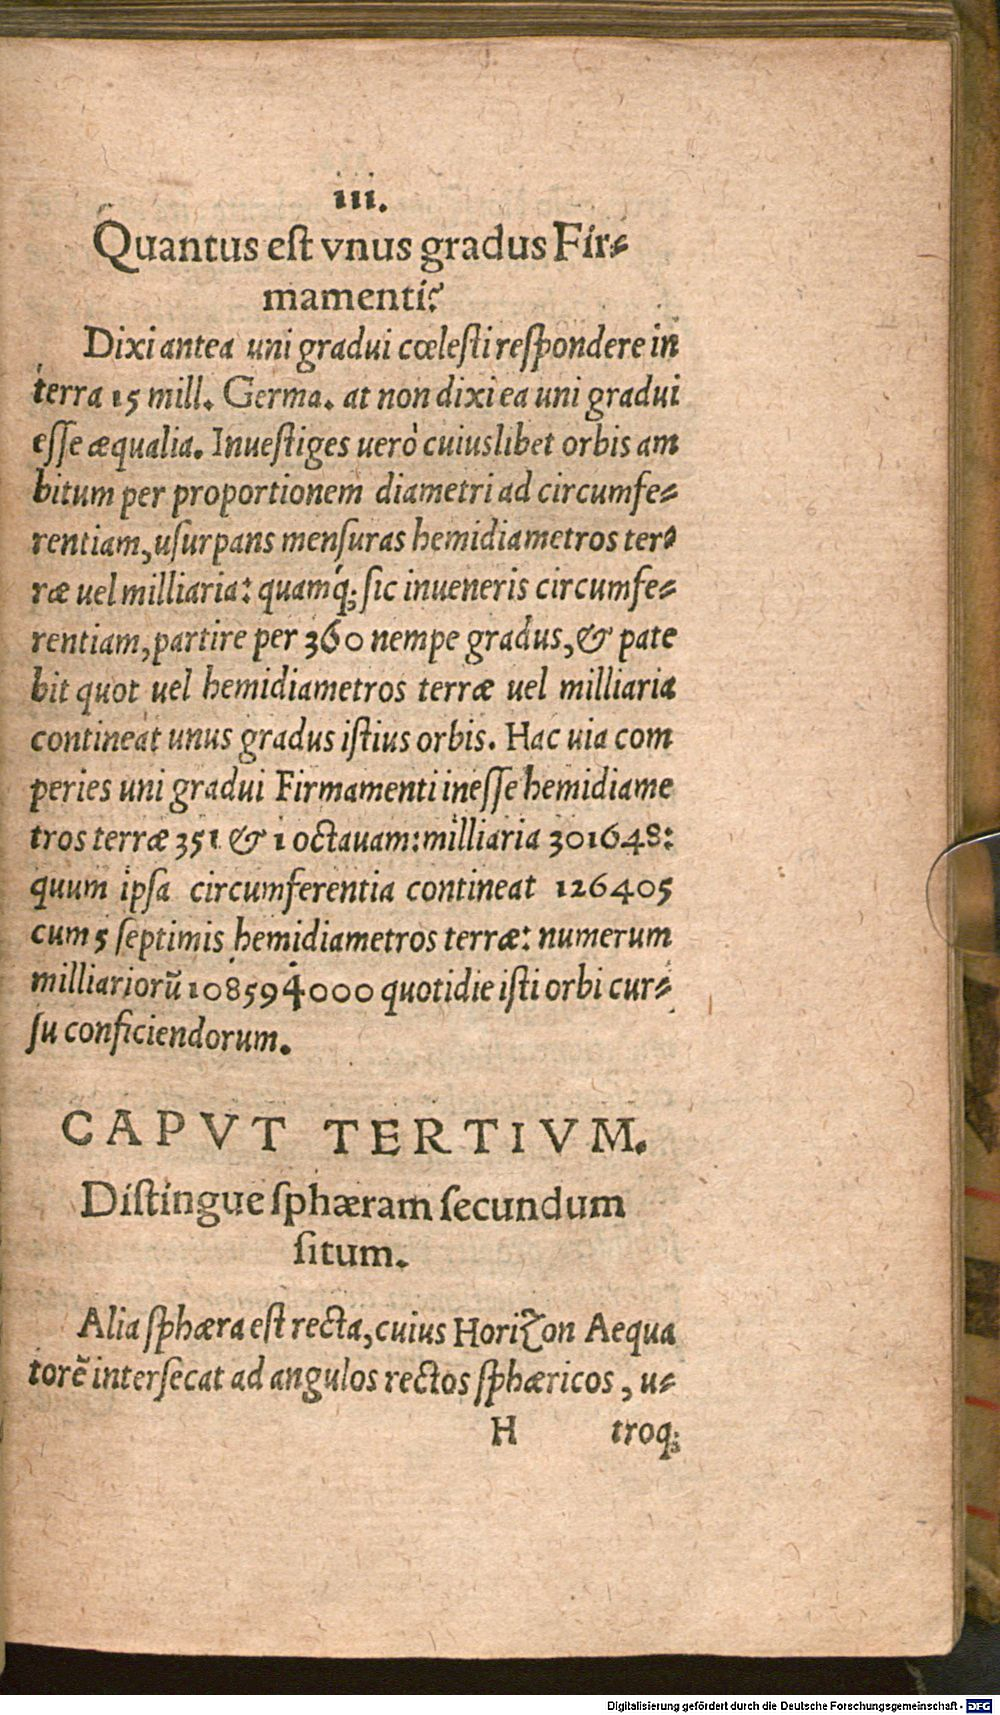 iii.
Quantus eſt vnus gradus Fir⸗
mamenti?
Dixi antea uni gradui cœleſti reſpondere in
terra 15 mill. Germa. at non dixi ea uni gradui
eſſe æqualia. Inueſtiges uerò cuiuslibet orbis am
bitum per proportionem diametri ad circumfe⸗
rentiam, uſurpans menſuras hemidiametros ter⸗
ræ uel milliaria: quamq́; ſic inueneris circumfe⸗
rentiam, partire per 360 nempe gradus, & pate
bit quot uel hemidiametros terræ uel milliaria
contineat unus gradus iſtius orbis. Hac uia com
peries uni gradui Firmamenti ineſſe hemidiame
tros terræ 351 & 1 octauam: milliaria 301648:
quum ipſa circumferentia contineat 126405
cum 5 ſeptimis hemidiametros terræ: numerum
milliariorũ 108594000 quotidie iſti orbi cur⸗
ſu conficiendorum.
CAPVT TERTIVM.
Diſtingue ſphæram ſecundum
ſitum.
Alia ſphæra eſt recta, cuius Horizon Aequa
torẽ interſecat ad angulos rectos ſphæricos, u⸗
H troq;
Digitalisierung gefördert durch die Deutsche Forschungsgemeinschaft - DFG